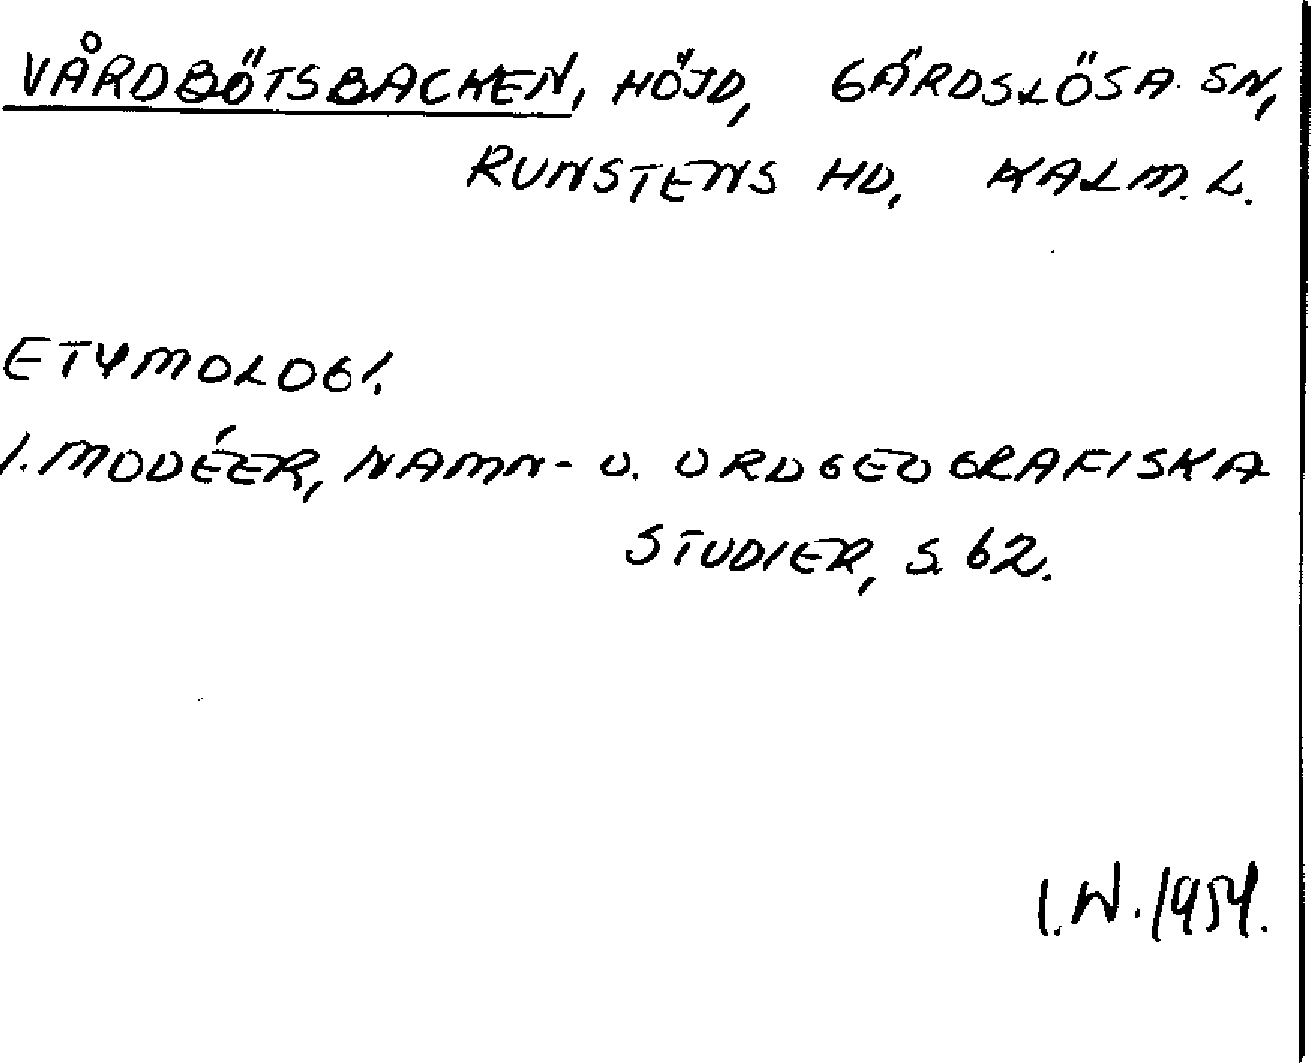 VÅRDBÖTSBACKEN, HÖJD, GÄRDSLÖSA SN,
RUNSTENS HD, KALM. L.
ETYMOLOGI.
I. MODÉER, NAMN- O. ORDGEOGRAFISKA
STUDIER, S. 62.
I.W. 1954.